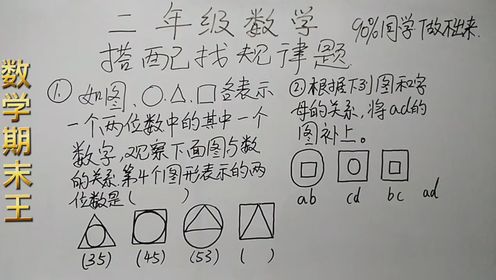 二年级数学
90%同学做不出来.
搭配找规律题
数学期末王
①. 如图、○、△、□各表示
一个两位数中的其中一个
数字,观察下面图与数
的关系.第4个图形表示的两
位数是( )
(35) (45) (53) ( )
②根据下列图和字
母的关系,将ad的
图补上。
ab cd bc ad